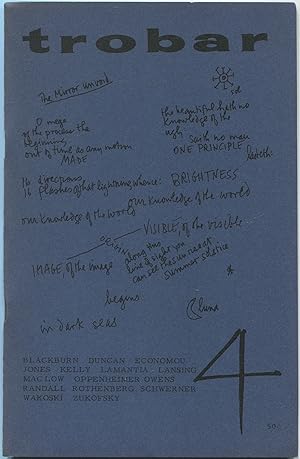 trobar
The Mirror unvoid
O mage
of the process the
beginning,
out of time as any motion
MADE
sol
the beautiful hath no
knowledge of the
ugly
saith no man
ONE PRINCIPLE
16 directions,
16 flashes of that lightning whence: BRIGHTNESS
our knowledge of the World
our knowledge of the world
ORIGINS
VISIBLE, of the visible
IMAGE of the image
along this
line of sight you
can see the sun rise at
summer solstice
begins
luna
in dark seas
BLACKBURN DUNCAN ECONOMOU
JONES KELLY LAMANTIA LANSING
MAC LOW OPPENHEIMER OWENS
RANDALL ROTHENBERG SCHWERNER
WAKOSKI ZUKOFSKY
4
50